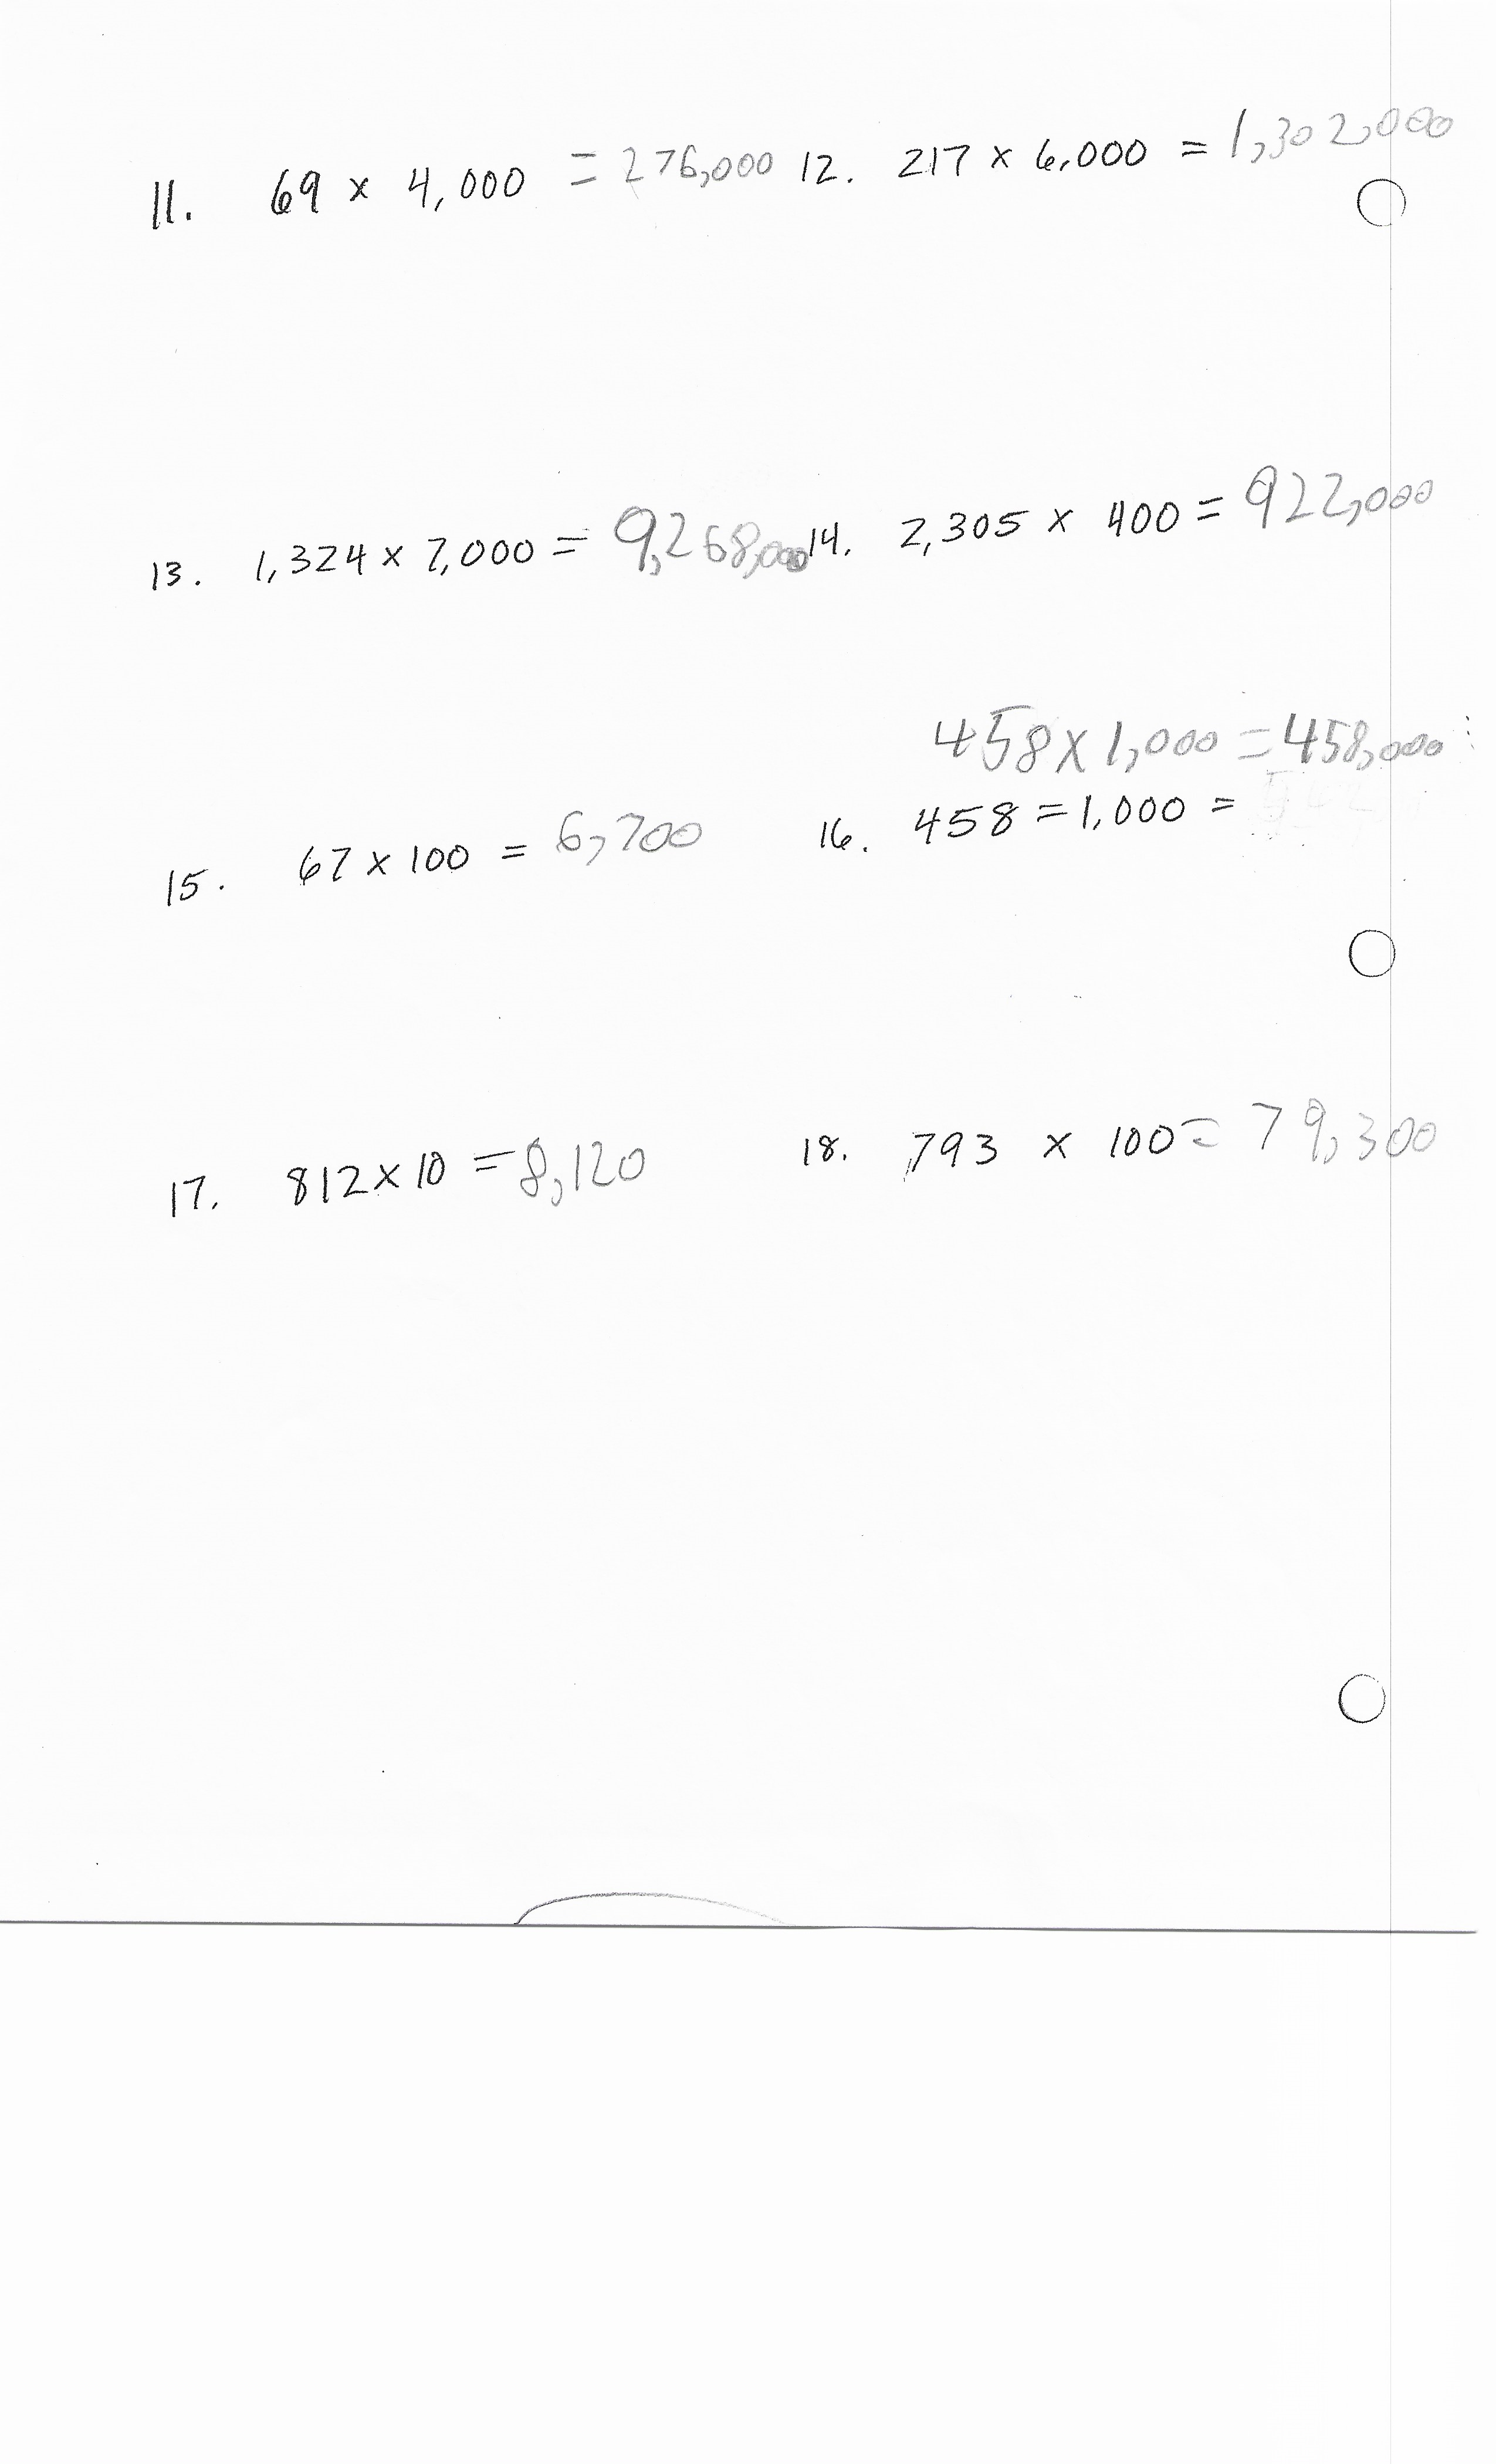 11. 69 x 4,000 = 276,000 12. 217 x 6,000 = 1,302,000
13. 1,324 x 7,000 = 9,268,000 14. 2,305 x 400 = 922,000
458 x 1,000 = 458,000
15. 67 x 100 = 6,700 16. 458 = 1,000 =
17. 812 x 10 = 8,120 18. 793 x 100 = 79,300